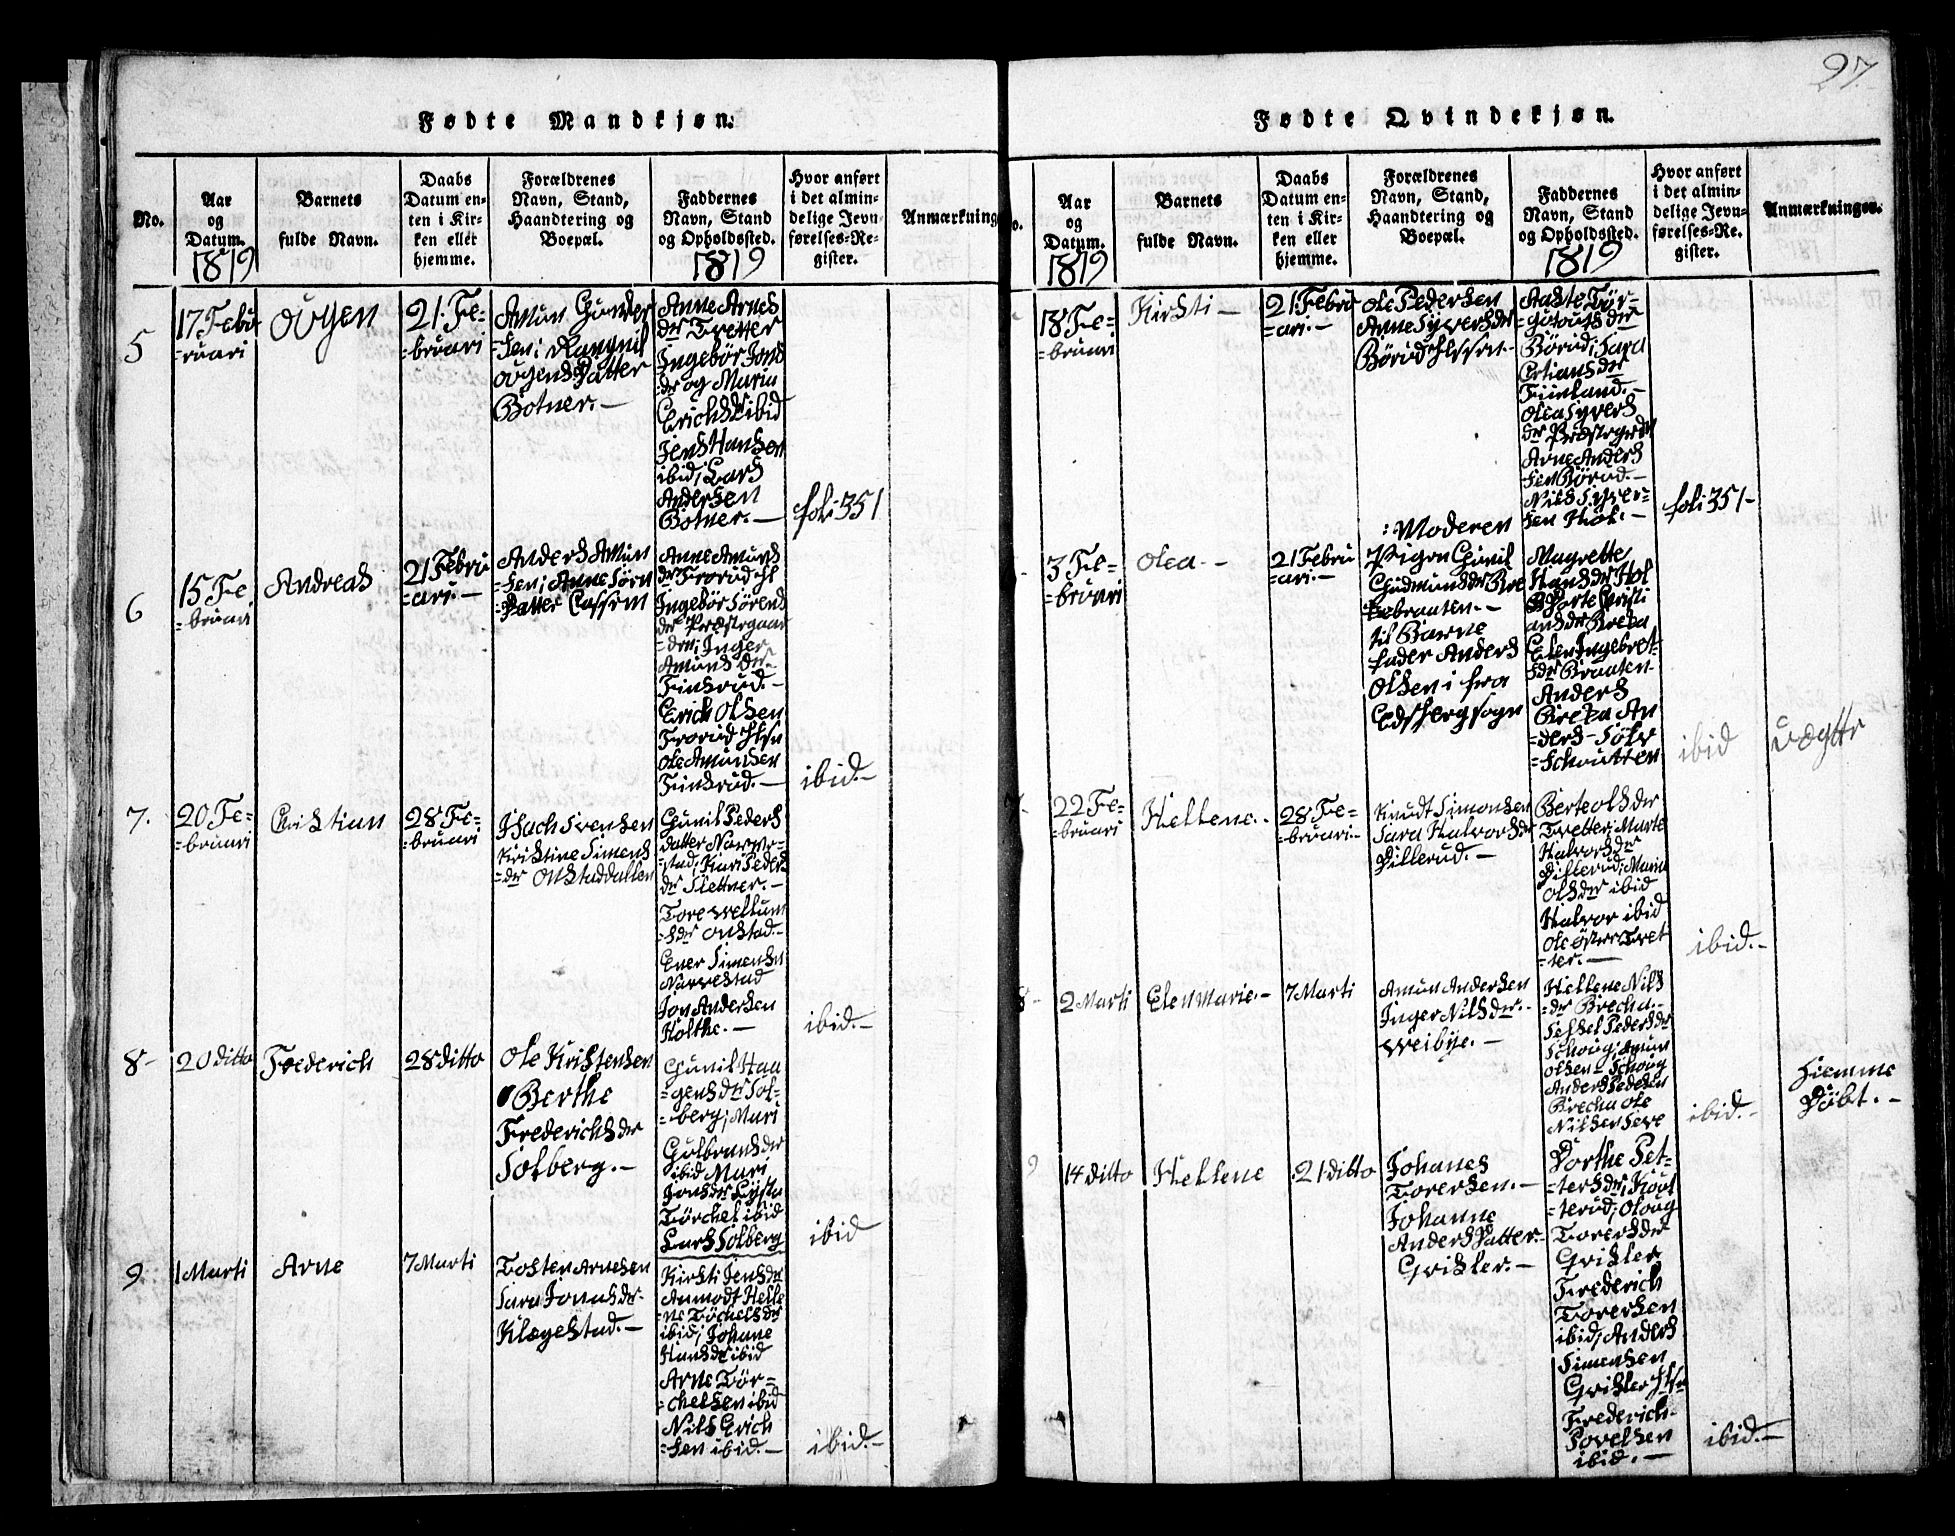 97.
Fødte Mandkjøn.
No.
Aar
og
Datum.
1819
Barnets
fulde Navn.
Daabs
Datum en-
ten i Kir-
ken eller
hjemme.
Forældrenes
Navn, Stand,
Haandtering og
Boepæl.
Faddernes
Navn, Stand
og Opholdssted.
1819
Hvor anført
i det almin-
delige Jevn-
førelses-Re-
gister.
Anmærkning
5
17 Febu
=ruari
ovgen
21. Fe-
=bruari
Amun Gunder
=sen; Rangnil
ovgens Datter
Botner.-
Anne Arnes
der Tvetter
Ingebör Jons
der og Maria
Erichsdr ibid
Jens Hansen
ibid; Lars
Andersen
Botner.-
fol: 351
6
15 Fe
=bruari
Andreas
21 Febru
=ari.-
Anders Amun
=sen; Anne Sörn
Datter Cassem
Anne Amunds
der Frorud
Ingebör Sörens
der Præstegaar
=den; Inger
Amunds der-
Finsrud.-
Erich Olsen
Frorud
ole Amunsen
Finsrud.-
ibid.-
7.
20 Fe=
=bruari
Christian
28 Fe-
=bruari
Isach Svensen
Kiristine Simens
=der Onstaddallen
Gunil Peders
datter Narve-
=stad; Kari Peders
der Slettner.-
Tore Wellum
=sder Onstad.-
Ener Simensen
Narvestad
Jon Andersen
Holthe.-
ibid.-
8-
20 ditto
Frederich
28 ditto
Ole Kristensen
Berthe
Frederichs der
Solberg.-
Gunil Haa
=gens der Sol-
=berg; Mari
Gulbrans der
ibid Mari
Jons der Lysta
Törchel ibid
Lars Solberg
ibid
9
1 Marti
Arne
7 Marti
Tosten Arnesen
Sara Jonas der-
Klægestad.-
Kirsti Jens der
Anmodt Helle
=ne Töchels der
ibid; Johane
Hans der ibid
Arne Tör=
=chelsen ibid
Nils Erich
=sen ibid.-
ibid.-
Fødte Qvindekjøn.
o.
Aar
og
Datum.
1819
Barnets
fulde Navn.
Daabs
Datum en-
ten i Kir-
ken eller
hjemme.
Forældrenes
Navn, Stand,
Haandtering og
Boepæl.
Faddernes
Navn, Stand
og Opholdssted.
1819
Hvor anført
i det almin-
delige Jevn-
førelses-Re-
gister.
Anmærkninger.
18 Fe-
=bruari
Kirsti -
21 Febru
=ari.-
ole Pedersen
Anne Syvers der
Börud
der
Börud; Sara
Cristians der
Finland.-
Olea Syvers
der Præstegrden
Arne Anders
sen Börud.-
Nils Syver=
sen Hol.-
fol: 351-
3 Fe=
=bruari
Olea.-
21 Febru
=ari.-
:Moderen
Pigen Gunil
Gudmunds der
braaten.-
til Barne
fader Anders
Olsen i fra
Edsberg sogn
Magrette
Hans der Hol
Dorte Cristi
ans der Breka
Elen Ingebret-
sdr Braaten-
Anders
Breka An
=ders Sölv
=schoutten
ibid
uægtte
22 Fe=
=bruari
Hellene.-
28 Fe-
=bruari-
Knudt Simonsen
Sara Halvors der
Dillerud.-
Berte ols der
Tvetter; Marte
Halvors der
Dillerud; Maria
ols der ibid
Halvor ibid
ole Tvet
=ter.-
ibid.-
8-
2 Marti
Elen Marie.-
7 Marti
Amun Andersen
Inger Nils der.-
Weibye.-
Hellene Nils
=der Brecha.-
Peders der
Schoug; Amun
olsen Schoug
Anders Pedersen
Brecha ole
Nilsen
ibid.-
Hiemme
Döbt.-
9
14 ditto
Hellene
21 ditto
Johanes
Torersen.-
Johanne
Anders Datter-
Grisler.-
Dorthe Pet-
=ters der;
=terud; Oloug
Torers der
Grisler
Frederich
Torersen
ibid; Anders
Simensen
Grisler
Frederich-
Povelsen
ibid.-
ibid.-